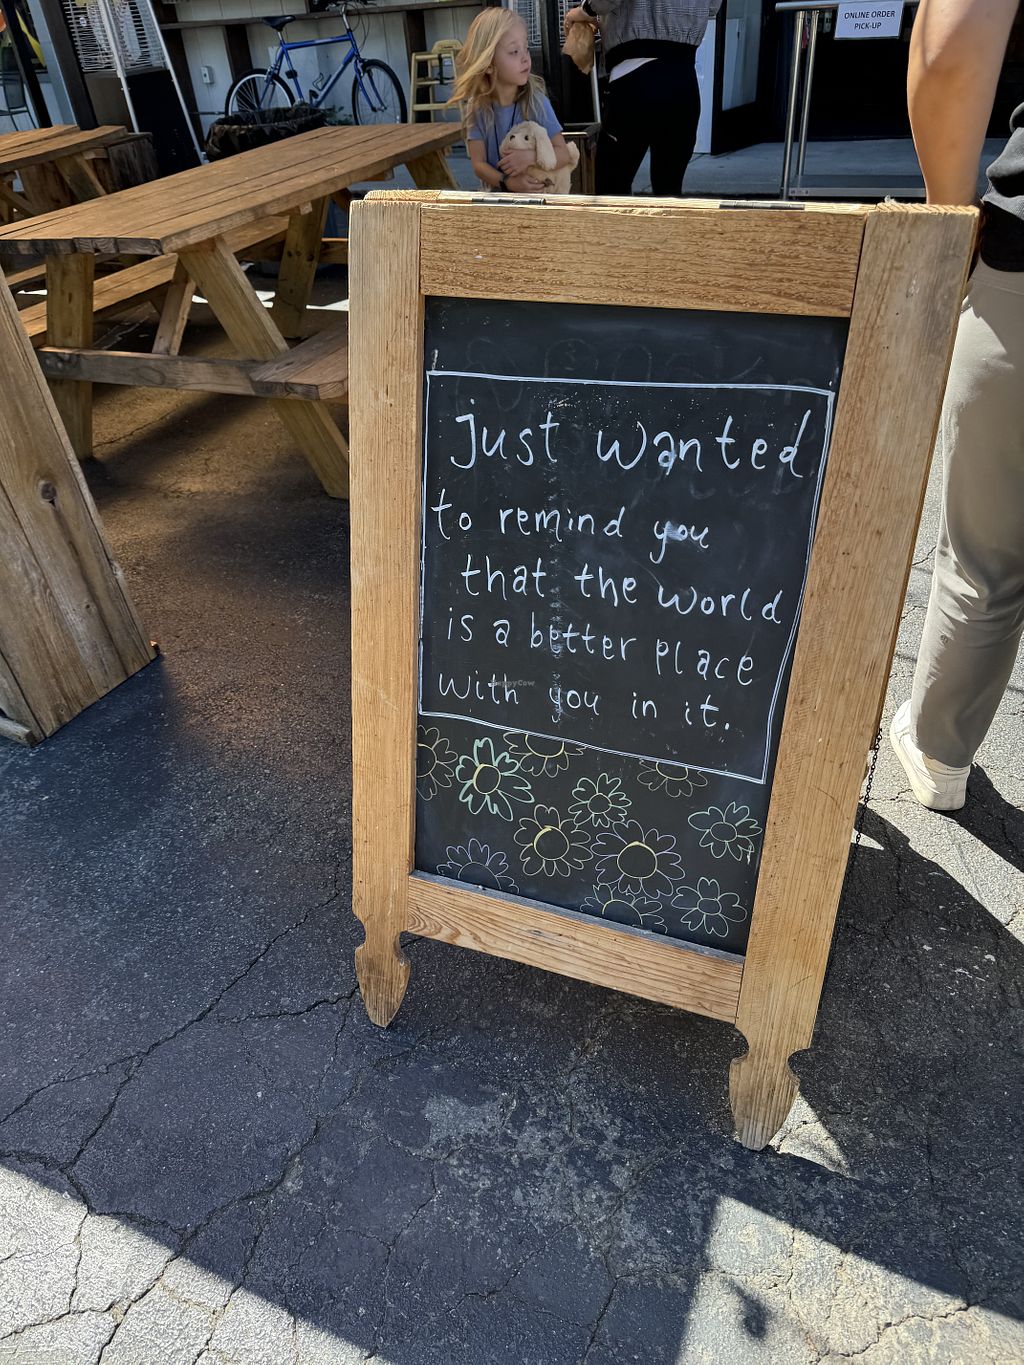 ONLINE ORDER
PICK-UP
just wanted
to remind you
that the world
is a better place
with you in it.
HappyCow